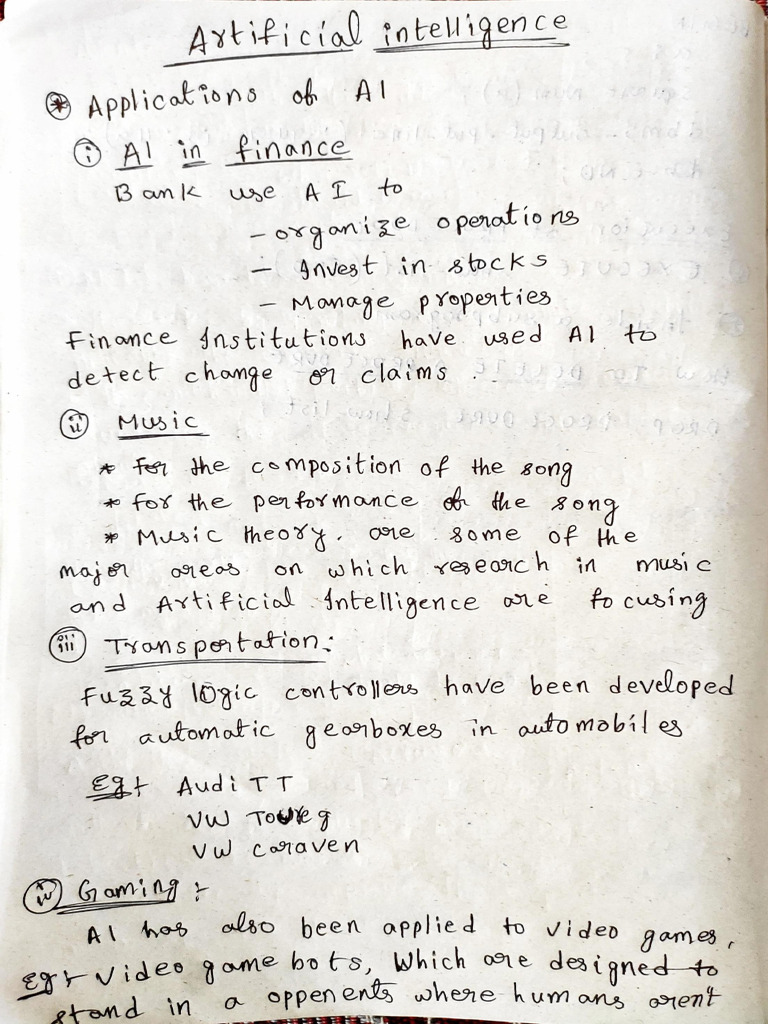 Artificial intelligence
* Applications of AI
i AI in finance
Bank use AI to
- organize operations
- Invest in stocks
- Manage properties
Finance Institutions have used AI to
detect change or claims.
ii Music
* for the composition of the song
* for the performance of the song
* Music theory. are some of the
major areas on which research in music
and Artificial Intelligence are focusing
iii Transportation:
Fuzzy logic controllers have been developed
for automatic gearboxes in automobiles
Eg:- Audi TT
VW Toureg
VW caraven
iv Gaming :-
AI has also been applied to video games,
Eg:- Video game bots, Which are designed to
stand in a oppenents where humans aren't